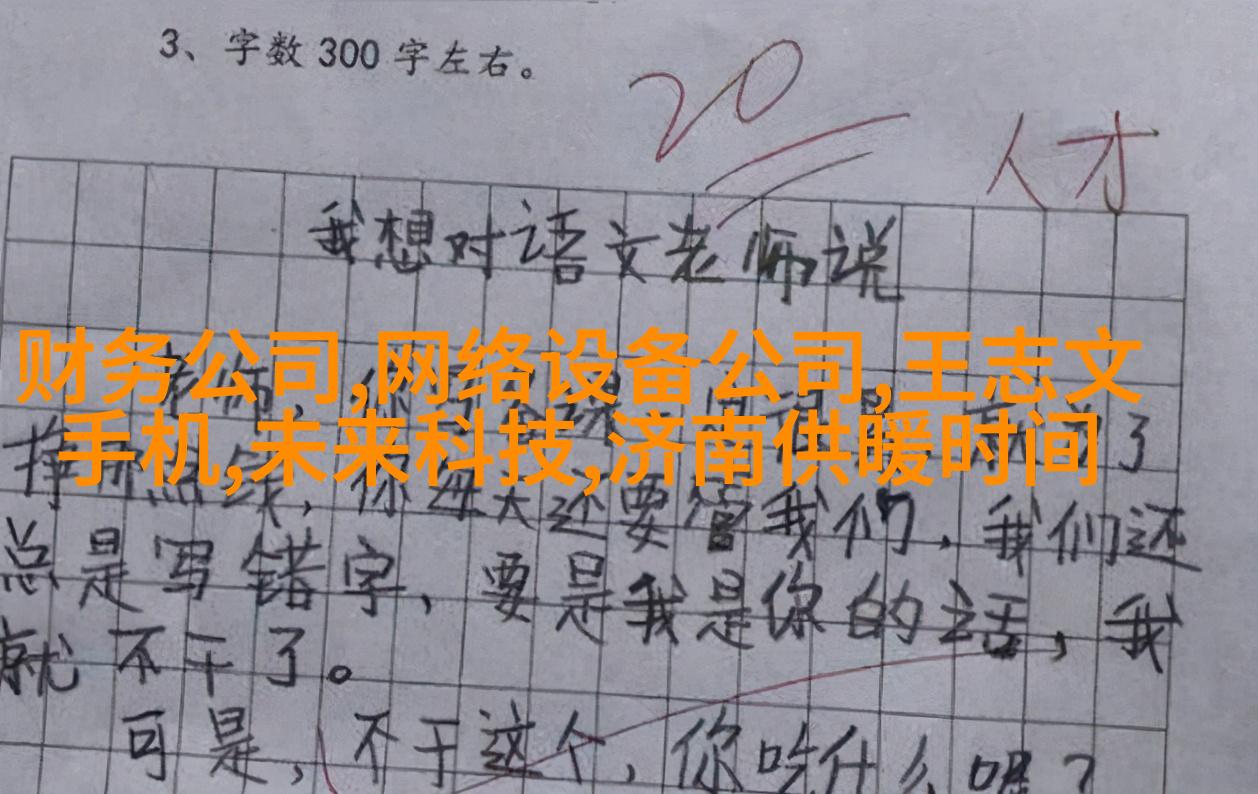 3、字数300字左右。
20
人才
我想对语文老师说
财务公司,网络设备公司,王志文
手机,未来科技,济南供暖时间
你每天还要管我们,我们还
总是写错字,要是我是你的话,我
就不干了。
可是,不干这个,你吃什么呢?